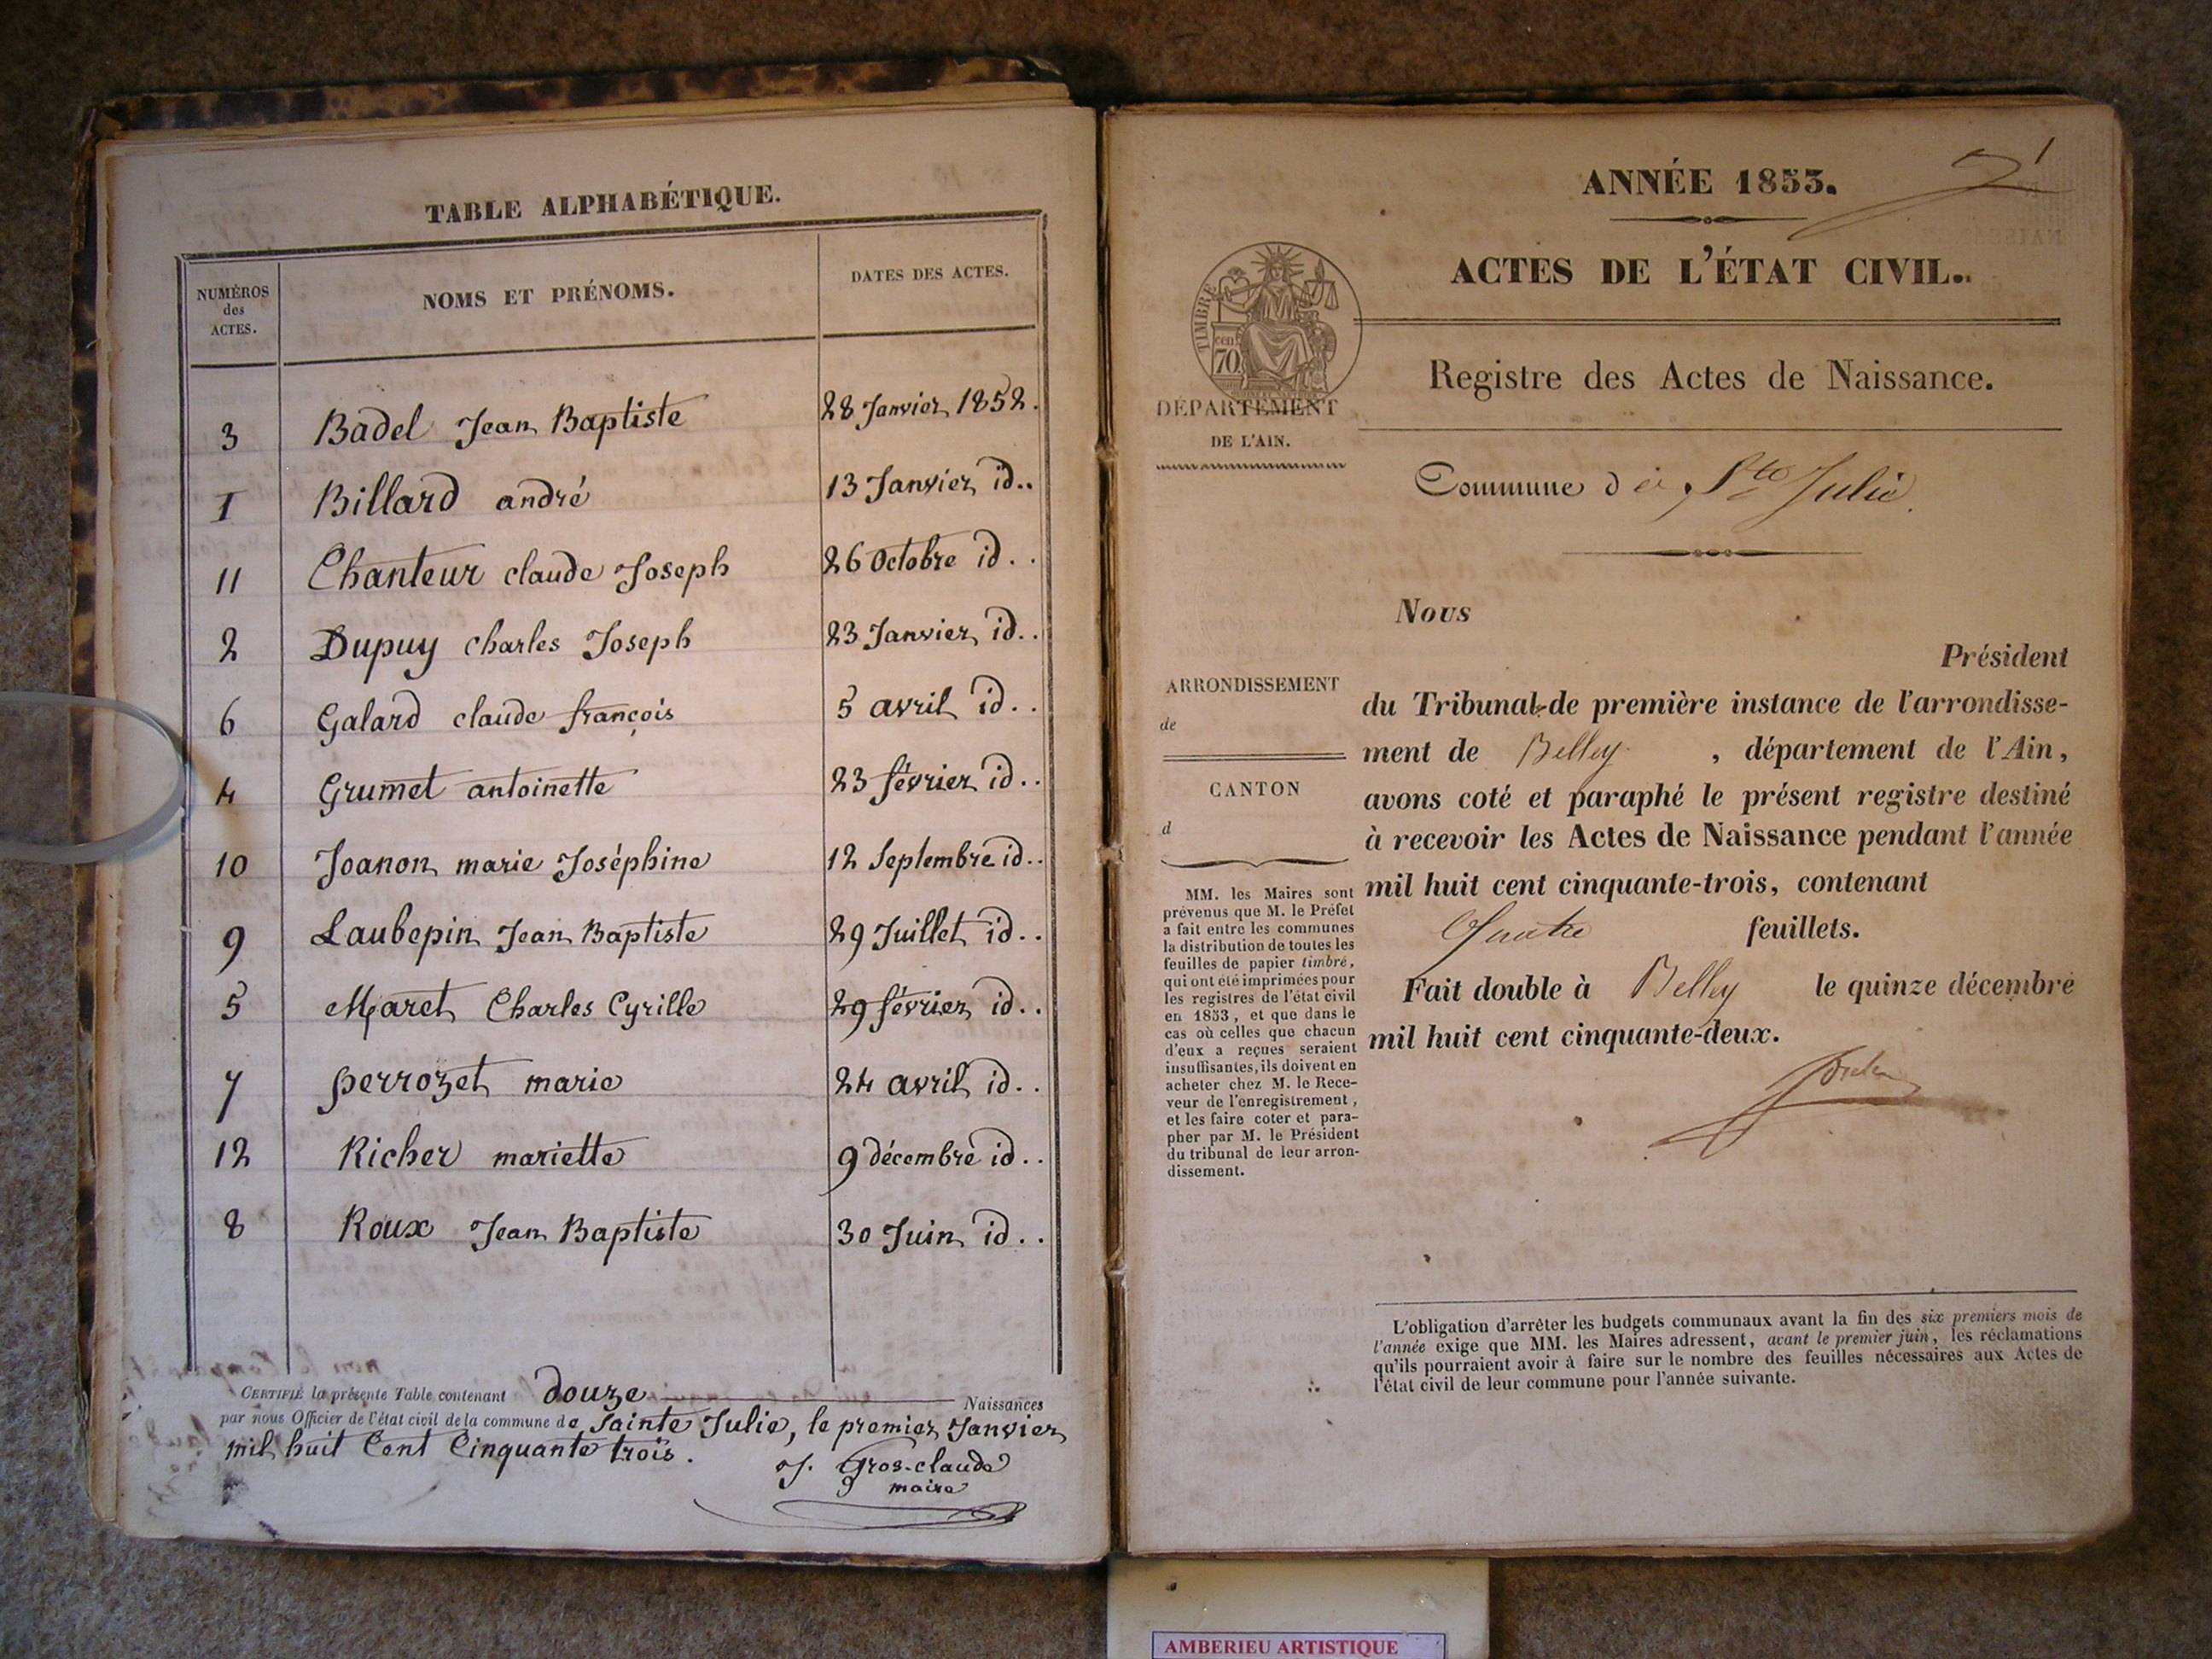 TABLE ALPHABÉTIQUE.
NUMÉROS des ACTES. NOMS ET PRÉNOMS. DATES DES ACTES.
3 Badel Jean Baptiste 28 Janvier 1852.
1 Billard andré 13 Janvier id..
11 Chanteur claude Joseph 26 Octobre id..
2 Dupuy charles Joseph 23 Janvier id..
6 Galard claude françois 5 avril id..
4 Grumet antoinette 23 février id..
10 Joanon marie Joséphine 12 Septembre id..
9 Laubepin Jean Baptiste 29 Juillet id..
5 Maret Charles Cyrille 29 février id..
7 perrozet marie 24 avril id..
12 Richer mariette 9 décembre id..
8 Roux Jean Baptiste 30 Juin id..
CERTIFIÉ la présente Table contenant douze Naissances
par nous Officier de l'état civil de la commune de Sainte Julie, le premier Janvier
mil huit Cent Cinquante trois.
J. Gros-claude
maire
1
ANNÉE 1853.
ACTES DE L'ÉTAT CIVIL.
TIMBRE
70 cen
Registre des Actes de Naissance.
DÉPARTEMENT
DE L'AIN.
Commune de Ste Julie.
Nous
Président
ARRONDISSEMENT
de
CANTON
d
du Tribunal de première instance de l'arrondisse-
ment de Belley, département de l'Ain,
avons coté et paraphé le présent registre destiné
à recevoir les Actes de Naissance pendant l'année
mil huit cent cinquante-trois, contenant
Quatre feuillets.
Fait double à Belley le quinze décembre
mil huit cent cinquante-deux.
MM. les Maires sont
prévenus que M. le Préfet
a fait entre les communes
la distribution de toutes les
feuilles de papier timbré,
qui ont été imprimées pour
les registres de l'état civil
en 1853, et que dans le
cas où celles que chacun
d'eux a reçues seraient
insuffisantes, ils doivent en
acheter chez M. le Rece-
veur de l'enregistrement,
et les faire coter et para-
pher par M. le Président
du tribunal de leur arron-
dissement.
L'obligation d'arrêter les budgets communaux avant la fin des six premiers mois de
l'année exige que MM. les Maires adressent, avant le premier juin, les réclamations
qu'ils pourraient avoir à faire sur le nombre des feuilles nécessaires aux Actes de
l'état civil de leur commune pour l'année suivante.
AMBERIEU ARTISTIQUE